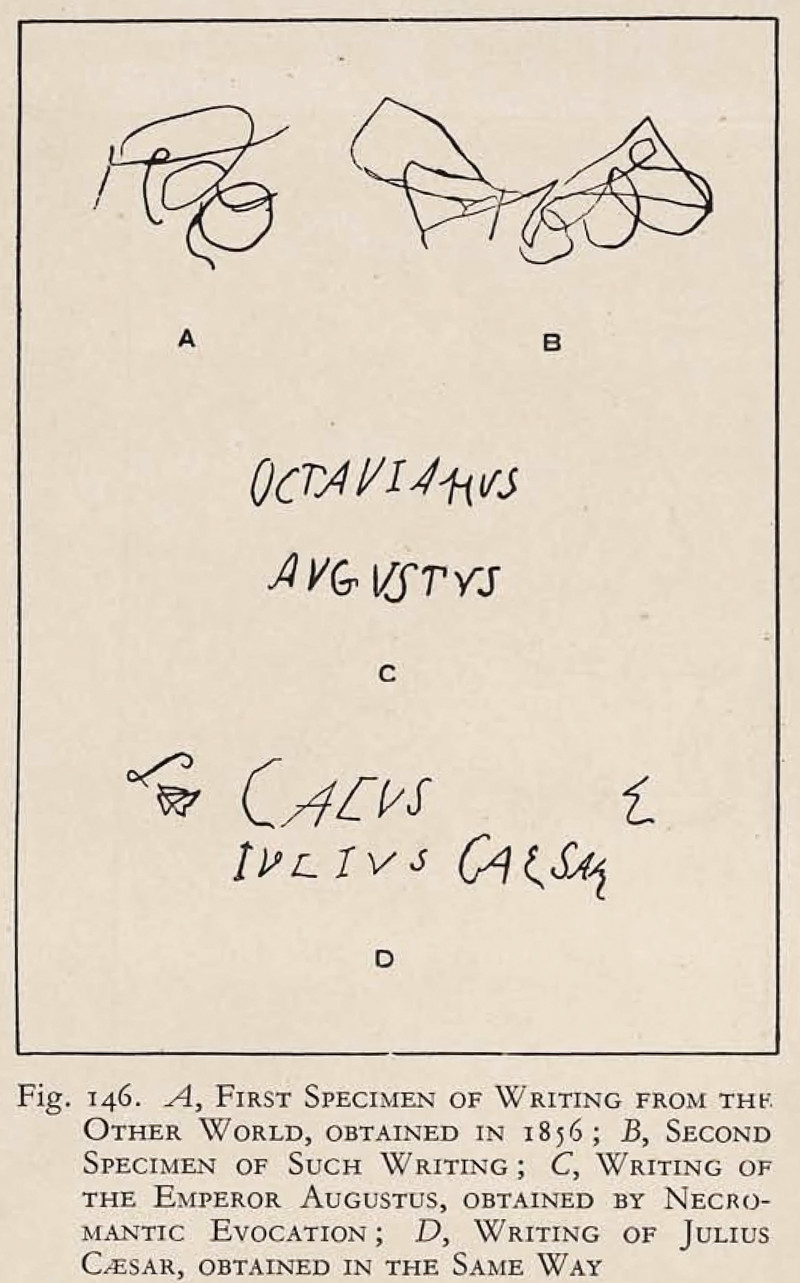 A
B
OCTAVIANVS
AVGVSTVS
C
CAEVS
IVLIVS CAESAR
D
Fig. 146. A, First Specimen of Writing from the
Other World, obtained in 1856; B, Second
Specimen of Such Writing; C, Writing of
the Emperor Augustus, obtained by Necro-
mantic Evocation; D, Writing of Julius
Cæsar, obtained in the Same Way